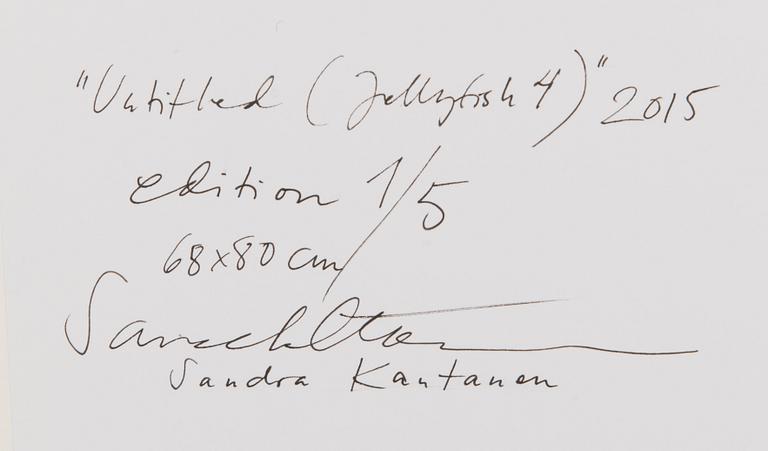 "Untitled (Jellyfish 4)" 2015
edition 1/5
68x80 cm
Sandra Kantanen